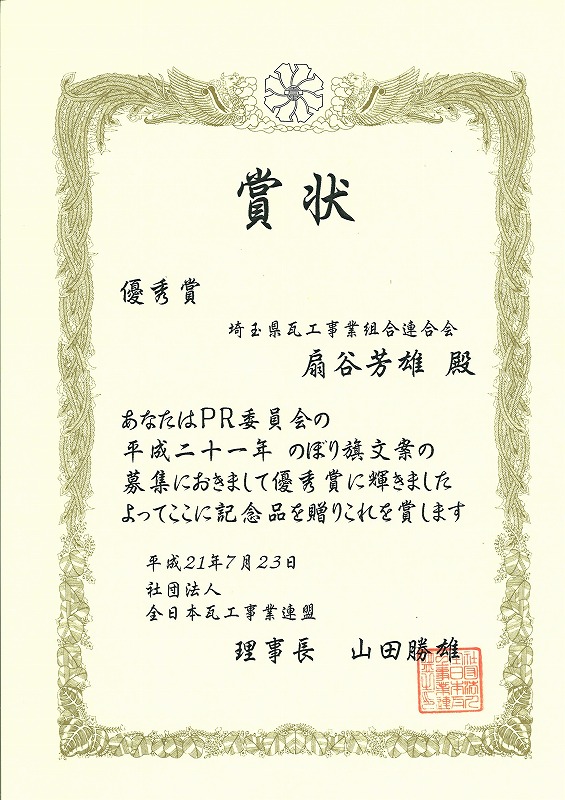 賞状
優秀賞
埼玉県瓦工事業組合連合会
扇谷芳雄 殿
あなたはPR委員会の
平成二十一年 のぼり旗文案の
募集におきまして優秀賞に輝きました
よってここに記念品を贈りこれを賞します
平成21年7月23日
社団法人
全日本瓦工事業連盟
理事長 山田勝雄